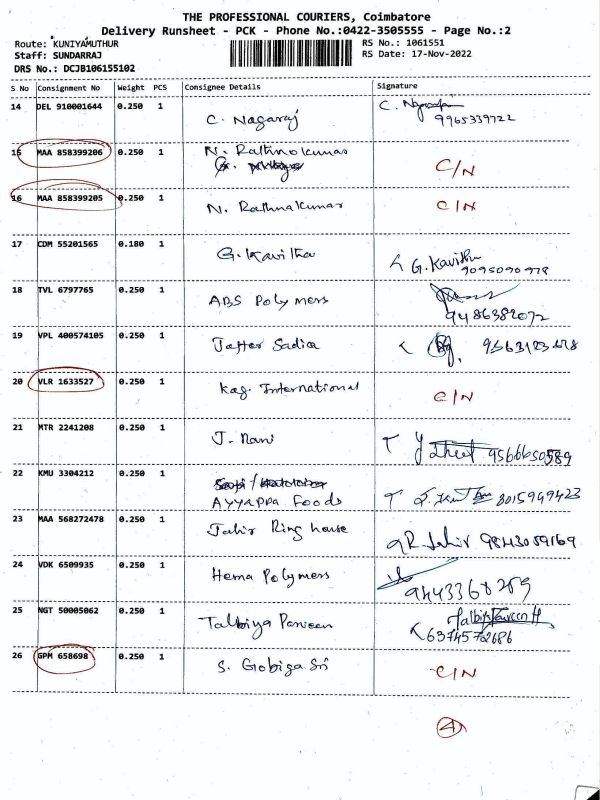 THE PROFESSIONAL COURIERS, Coimbatore
Delivery Runsheet - PCK - Phone No.:0422-3505555 - Page No.:2
Route: KUNIYAMUTHUR
RS No.: 1061551
Staff: SUNDARRAJ
RS Date: 17-Nov-2022
DRS No.: DCJB106155102
S No Consignment No Weight PCS Consignee Details Signature
14 DEL 910001644 0.250 1 C. Nagaraj C.
9965339722
15 MAA 858399206 0.250 1 N. Rathnakumar C/N
16 MAA 858399205 0.250 1 N. Rathnakumar C/N
17 CDM 55201565 0.180 1 G. Kavitha G. Kavitha
9095090978
18 TVL 6797765 0.250 1 ABS Polymers
9486382072
19 VPL 400574105 0.250 1 Jaffer Sadiq
20 VLR 1633527 0.250 1 Kag. International C/N
21 MTR 2241208 0.250 1 J. Mani 9566650589
22 KMU 3304212 0.250 1
Ayyappa Foods 8015949423
23 MAA 568272478 0.250 1 Jahir Ring house 9843059169
24 VDK 6509935 0.250 1 Hema Polymers 9443368289
25 NGT 50005062 0.250 1 Talbiya Parveen Talbiya Parveen H
6374572686
26 GPM 658698 0.250 1 S. Gobiga Sri C/N
4